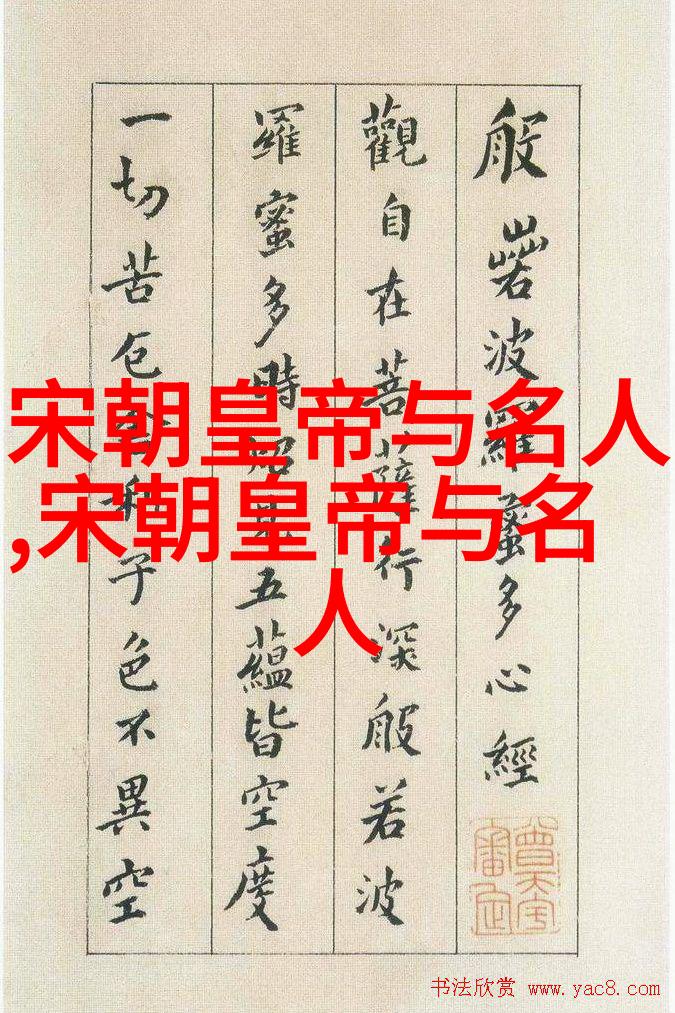 宋朝皇帝与名人
,宋朝皇帝与名
人
般若波羅蜜多心經
觀自在菩薩行深般若波
羅蜜多時照見五蘊皆空度
一切苦厄舍利子色不異空
书法欣赏 www.yac8.com